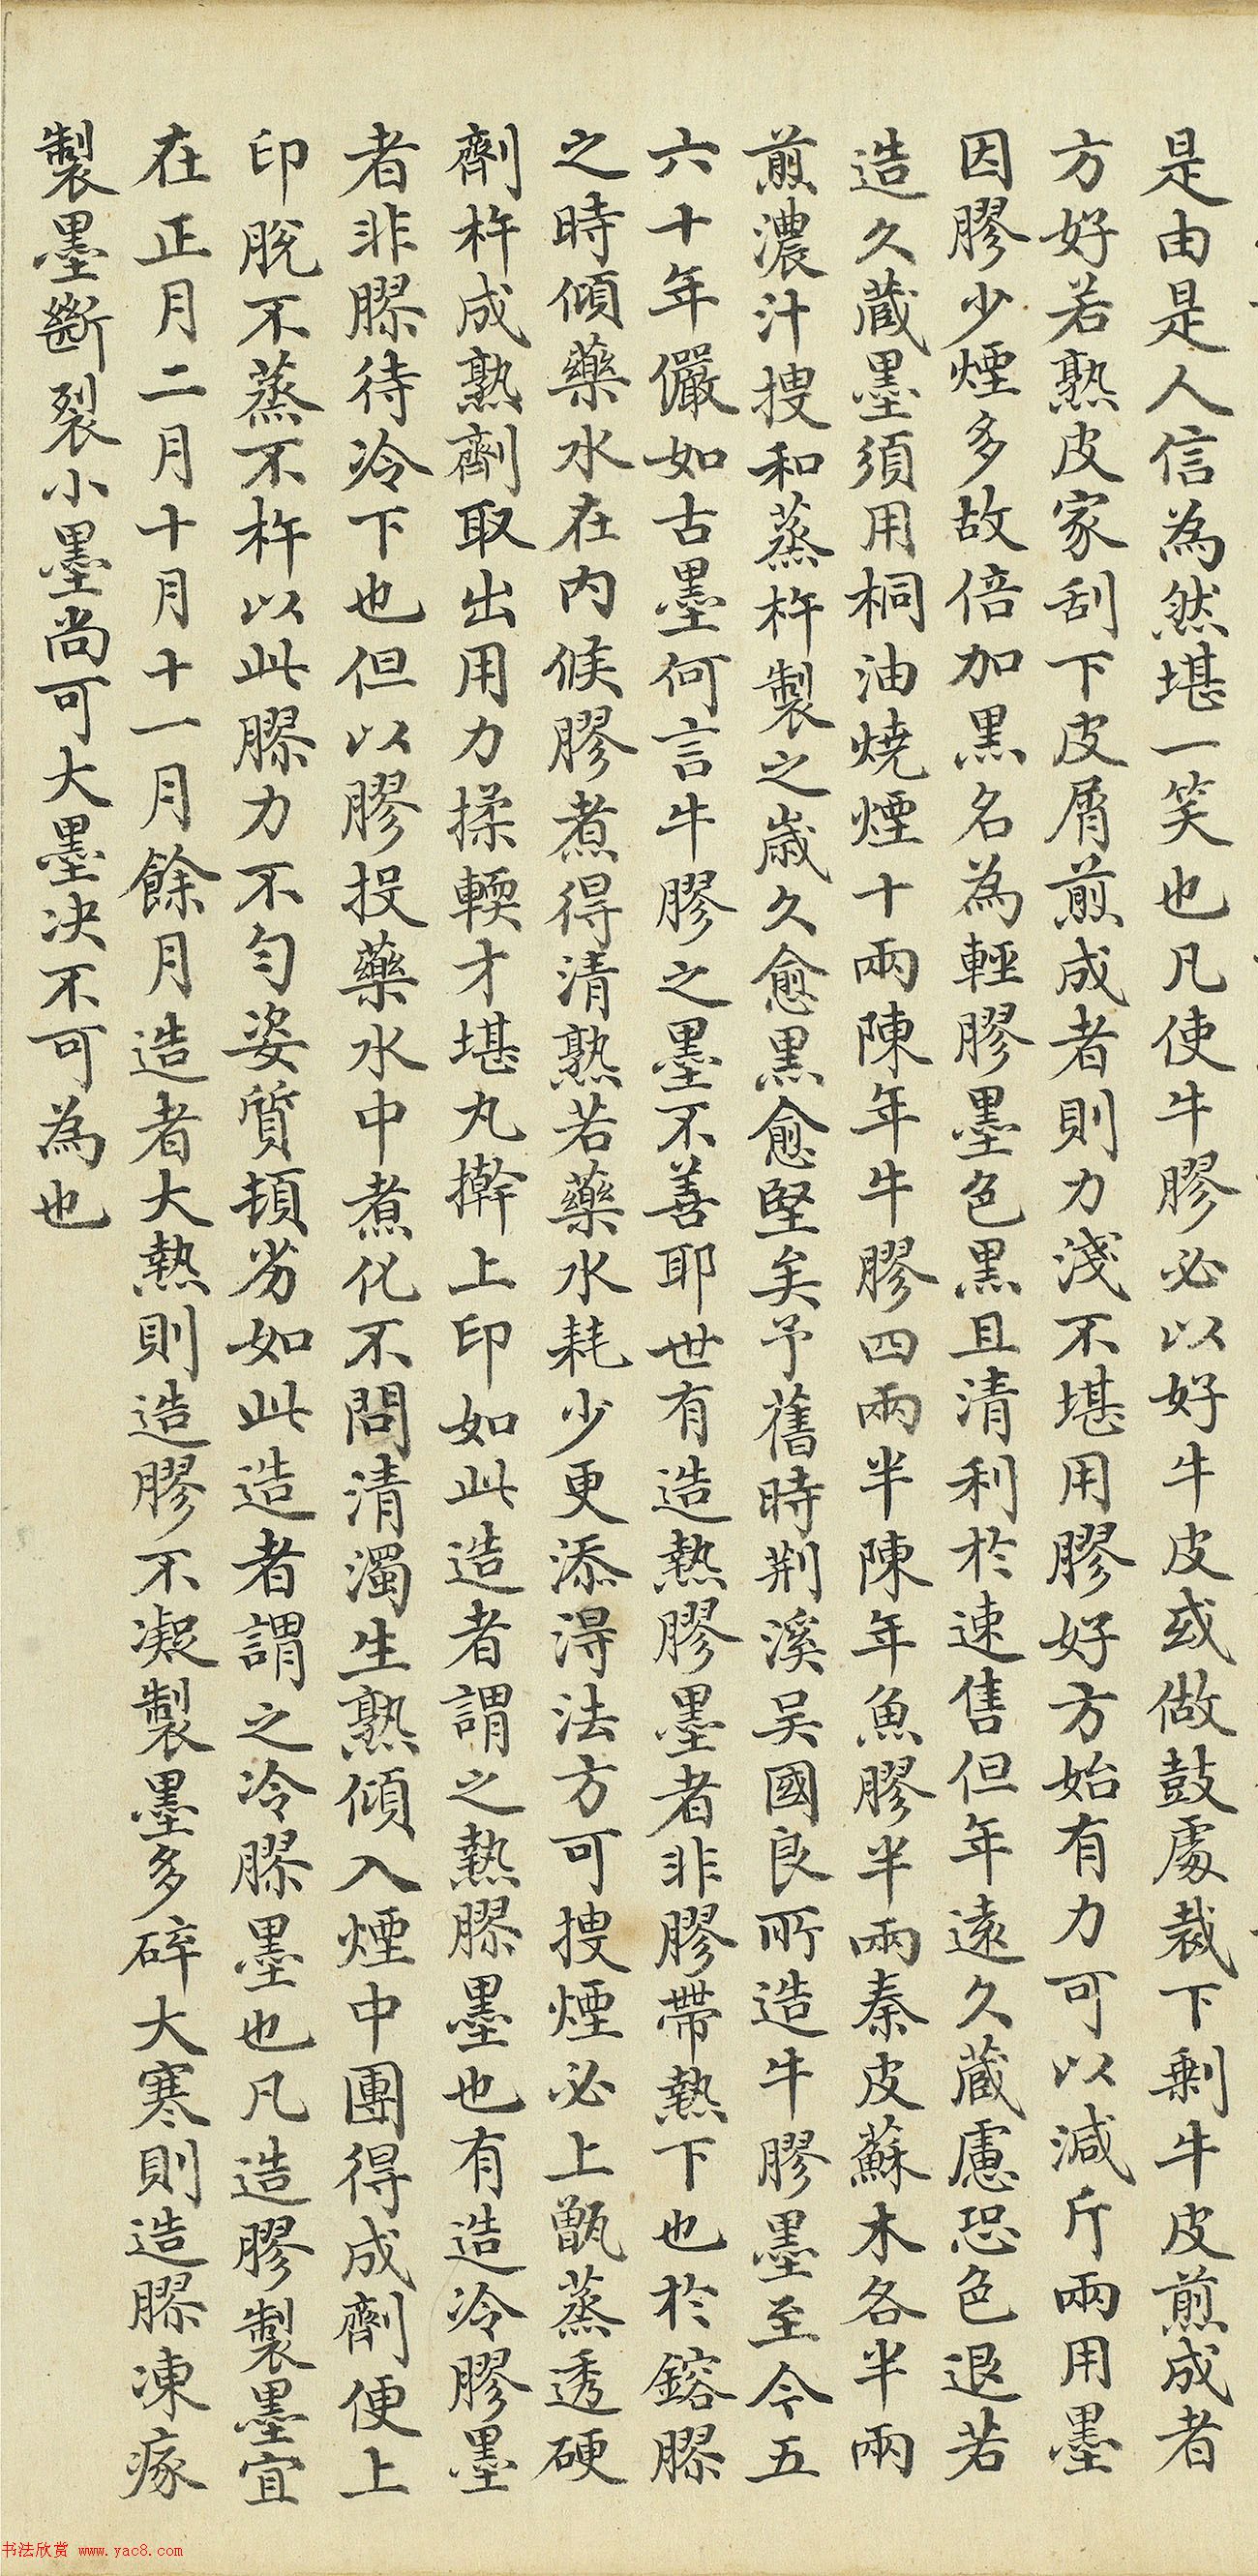 是由是人信為然堪一笑也凡使牛膠必以好牛皮或做鼓處裁下剩牛皮煎成者
方好若熟皮家刮下皮屑煎成者則力淺不堪用膠好方始有力可以減斤兩用墨
因膠少煙多故倍加黑名為輕膠墨色黑且清利於速售但年遠久蔵慮恐色退若
造久蔵墨須用桐油燒煙十兩陳年牛膠四兩半陳年魚膠半兩秦皮蘇木各半兩
煎濃汁搜和蒸杵製之歲久愈黑愈堅矣予舊時荆溪吴國良所造牛膠墨至今五
六十年儼如古墨何言牛膠之墨不善耶世有造熱膠墨者非膠帶熱下也於鎔膠
之時傾藥水在内候膠煮得清熟若藥水耗少更添淂法方可搜煙必上甑蒸透硬
劑杵成熟劑取出用力揉輭才堪丸擀上印如此造者謂之熱膠墨也有造冷膠墨
者非膠待冷下也但以膠投藥水中煮化不問清濁生熟傾入煙中團得成劑便上
印脫不蒸不杵以此膠力不勻姿質頓劣如此造者謂之冷膠墨也凡造膠製墨宜
在正月二月十月十一月餘月造者大熱則造膠不凝製墨多碎大寒則造膠凍瘃
製墨斷裂小墨尚可大墨决不可為也
书法欣赏 www.yac8.com